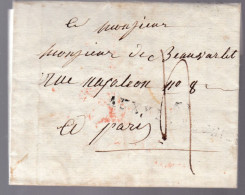 a monsieur
monsieur de Beauvarlet
rue napoleon no 8
a paris